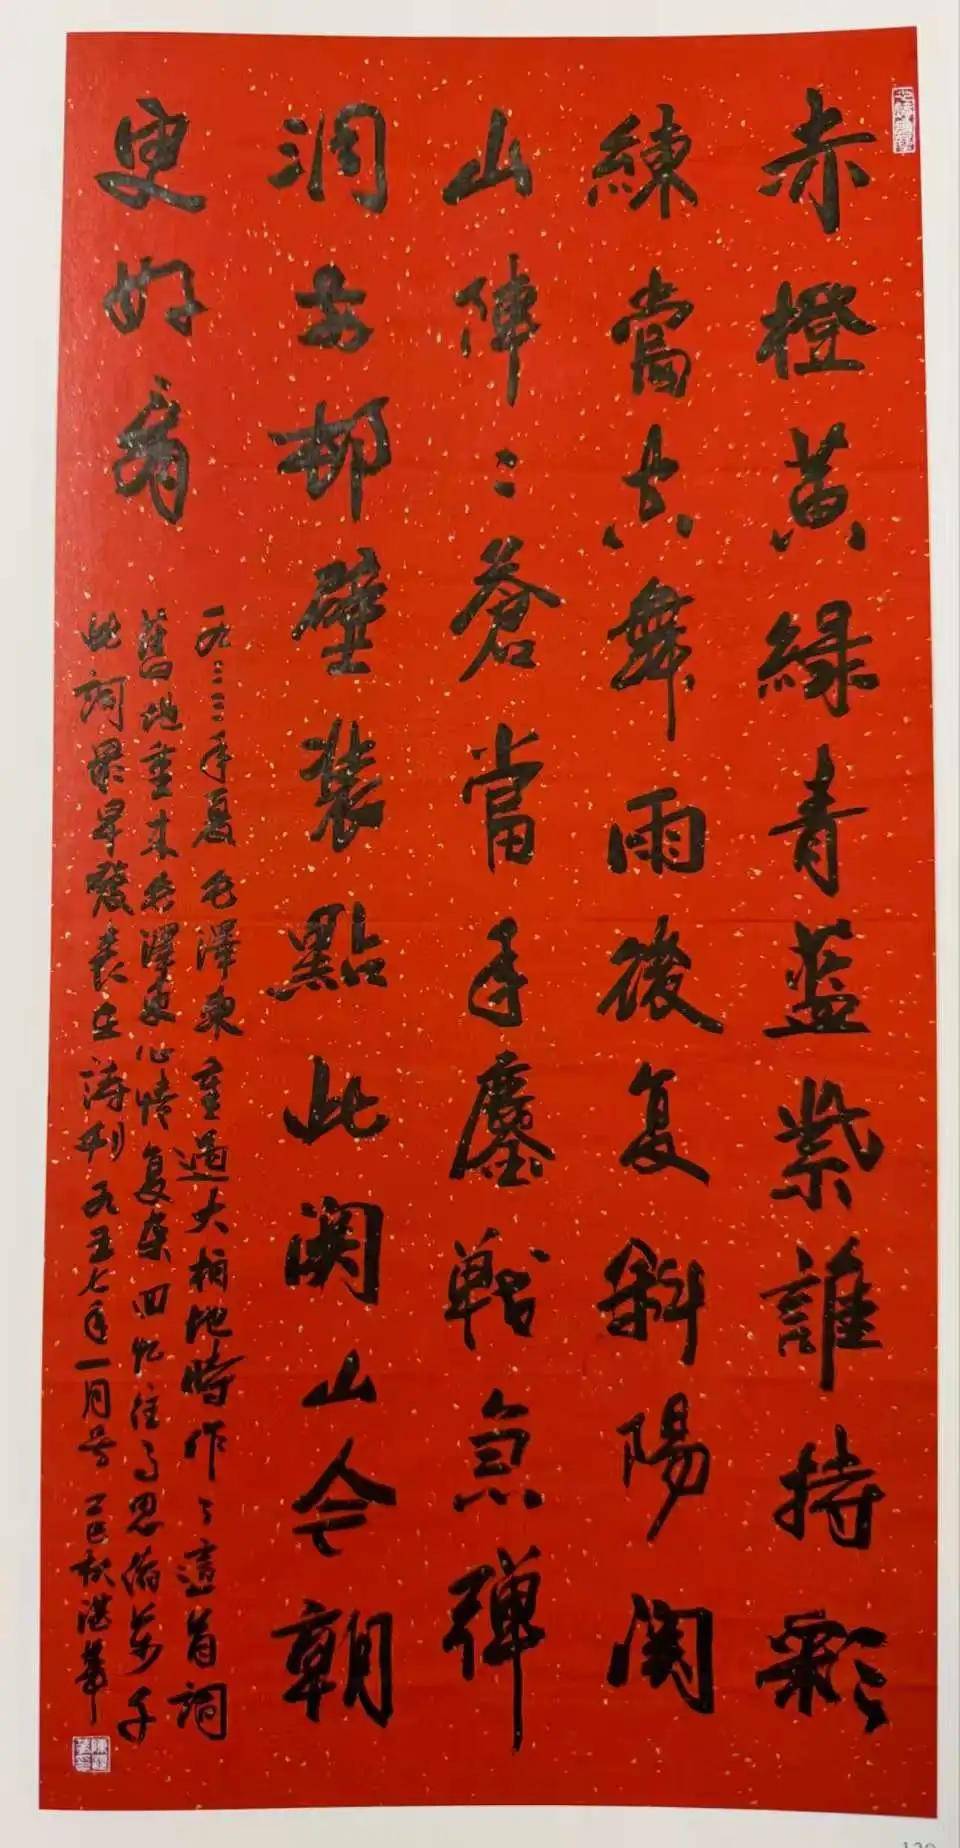 赤橙黄緑青蓝紫誰持彩
練當空舞雨後复斜陽関
山陣〻蒼當年鏖戰急彈
洞前邨壁裝點此関山今朝
更好看
一九三三年夏毛澤東重過大柏地時作了這首詞
舊地重来毛澤東心情复杂回忆往事思萬千
此詞最早發表在詩刊九五七年一月号乙巳秋